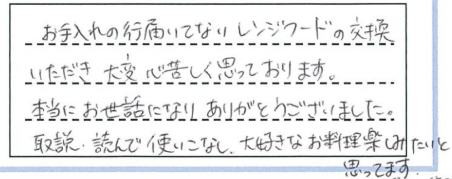 お手入れの行届いてないレンジフードの交換
いただき大変心苦しく思っております。
本当にお世話になりありがとうございました。
取説、読んで使いこなし、大好きなお料理楽しみたいと
思ってます。